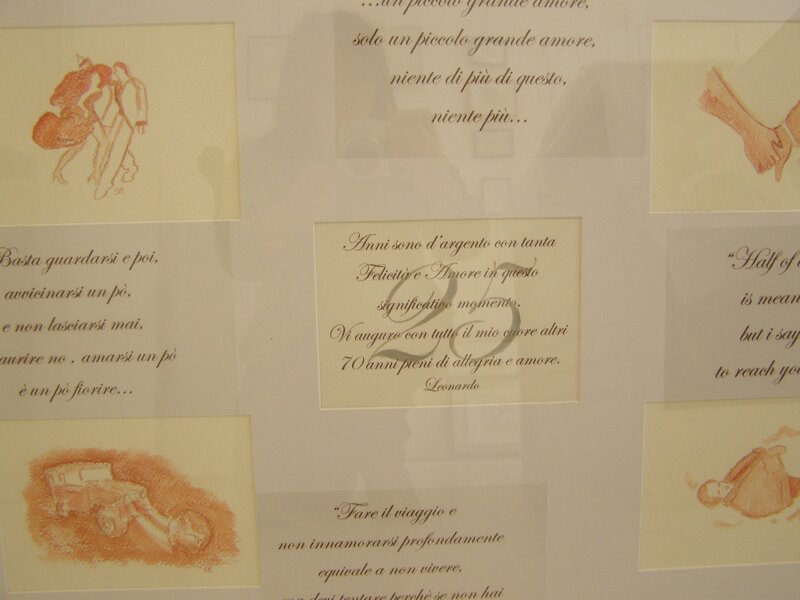 ...un piccolo grande amore,
solo un piccolo grande amore,
niente di più di questo,
niente più...
SB
Basta guardarsi e poi,
avvicinarsi un pò,
e non lasciarsi mai,
aurire no , amarsi un pò
è un pò fiorire...
25
Anni sono d'argento con tanta
Felicità e Amore in questo
significativo momento.
Vi auguro con tutto il mio cuore altri
70 anni pieni di allegria e amore.
Leonardo
"Half of
is mean
but i say
to reach yo
SB
"Fare il viaggio e
non innamorarsi profondamente
equivale a non vivere,
ma devi tentare perchè se non hai